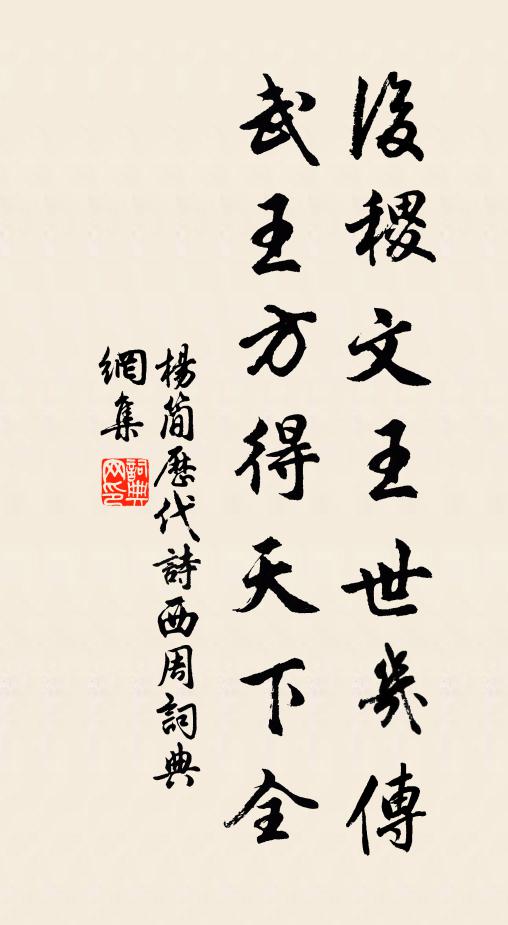 後稷文王世幾傳
武王方得天下全
楊簡歷代詩西周詞典
網集
詞典
网印